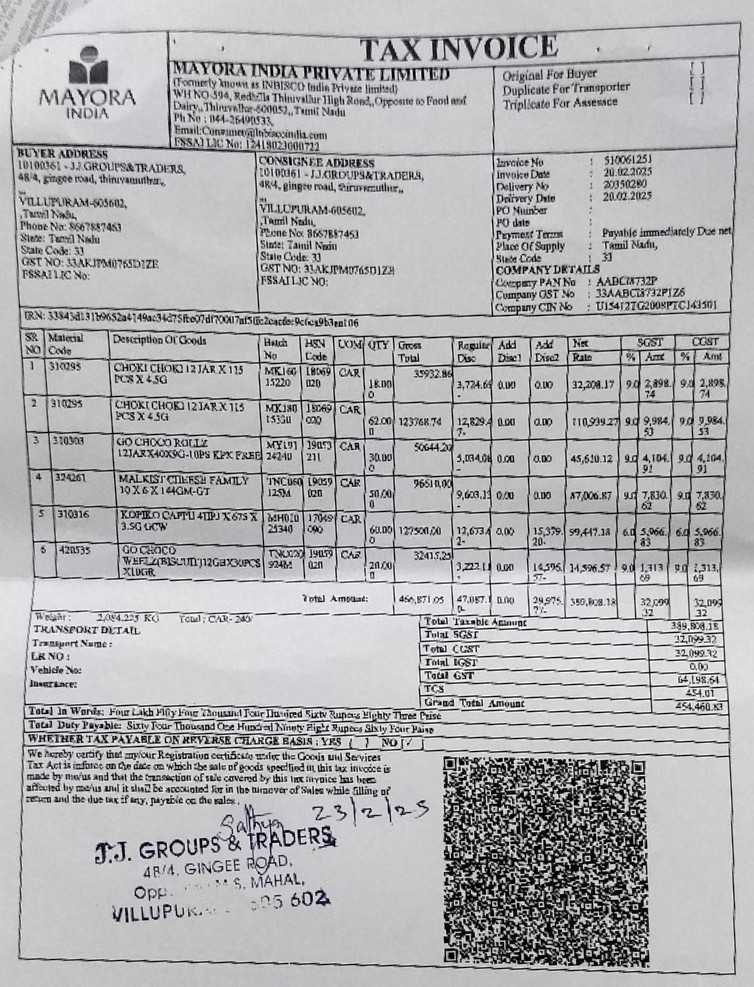 MAYORA
INDIA
TAX INVOICE
MAYORA INDIA PRIVATE LIMITED
(Formerly known as INBISCO India Private limited)
WH NO-594, Redhills Thiruvallur High Road,,Opposite to Food and
Dairy,,Thiruvallur-600052,,Tamil Nadu
Ph No : 044-26490533,
FSSAI LIC No: 12418023000722
Original For Buyer [ ]
Duplicate For Transporter [ ]
Triplicate For Assesce [ ]
BUYER ADDRESS
10100361 - J.J.GROUPS&TRADERS,
48/4, gingee road, thiruvamuthur,,
VILLUPURAM-605602,
,Tamil Nadu,
Phone No: 8667887453
State: Tamil Nadu
State Code: 33
GST NO: 33AKJPM0765D1ZE
FSSAI LIC No:
CONSIGNEE ADDRESS
10100361 - J.J.GROUPS&TRADERS,
48/4, gingee road, thiruvamuthur,,
VILLUPURAM-605602,
,Tamil Nadu,
Phone No: 8667887453
State: Tamil Nadu
State Code: 33
GST NO: 33AKJPM0765D1ZE
FSSAI LIC NO:
Invoice No : 510061251
Invoice Date : 20.02.2025
Delivery No : 20350280
Delivery Date : 20.02.2025
PO Number :
PO date :
Payment Terms : Payable immediately Due net
Place Of Supply : Tamil Nadu,
State Code : 33
COMPANY DETAILS
Company PAN No : AABCI8732P
Company GST No : 33AABCI8732P1Z6
Company CIN No : U15412TG2008PTC143501
IRN:
SR NO Material Code Description Of Goods Batch No HSN Code UOM QTY Gross Total Regular Disc Add Disc1 Add Disc2 Net Rate SGST % Amt CGST % Amt
1 310295 CHOKI CHOKI 12 JAR X 115 PCS X 4.5G MK160 15220 18069 020 CAR 18.000 35932.86 3,724.69- 0.00 0.00 32,208.17 9.0 2,898.74 9.0 2,898.74
2 310295 CHOKI CHOKI 12 JAR X 115 PCS X 4.5G MK180 15330 18069 020 CAR 62.000 123768.74 12,829.47- 0.00 0.00 110,939.27 9.0 9,984.53 9.0 9,984.53
3 310303 GO CHOCO ROLLZ 12JARX40X9G-10PS KPK FREE MY191 24240 19053 211 CAR 30.000 50644.20 5,034.08- 0.00 0.00 45,610.12 9.0 4,104.91 9.0 4,104.91
4 324261 MALKIST CHEESE FAMILY 10 X 6 X 144GM-GT TNC060 125M 19059 020 CAR 50.000 96610.00 9,603.13- 0.00 0.00 87,006.87 9.0 7,830.62 9.0 7,830.62
5 310316 KOPIKO CAPPU 4HPJ X 675 X 3.5G GCW MH020 25340 17049 090 CAR 60.000 127500.00 12,673.42- 0.00 15,379.20- 99,447.18 6.0 5,966.83 6.0 5,966.83
6 420535 GO CHOCO WEFLZ(BISCUIT)12GBX30PCS X10GR TNC020 924M 19059 020 CAR 20.000 32415.25 3,222.11- 0.00 14,596.57- 14,596.57 9.0 1,313.69 9.0 1,313.69
Total Amount: 466,871.05 47,087.10- 0.00 29,975.77- 389,808.18 32,099.32 32,099.32
Weight : 2,084.225 KG Total : CAR- 240/
TRANSPORT DETAIL
Transport Name :
LR NO :
Vehicle No:
Insurance:
Total Taxable Amount 389,808.18
Total SGST 32,099.32
Total CGST 32,099.32
Total IGST 0.00
Total GST 64,198.64
TCS 454.01
Grand Total Amount 454,460.83
Total In Words: Four Lakh Fifty Four Thousand Four Hundred Sixty Rupees Eighty Three Paise
Total Duty Payable: Sixty Four Thousand One Hundred Ninety Eight Rupees Sixty Four Paise
WHETHER TAX PAYABLE ON REVERSE CHARGE BASIS : YES [ ] NO [/ ]
We hereby certify that my/our Registration certificate under the Goods and Services
Tax Act is inforce on the date on which the sale of goods specified in this tax invoice is
made by me/us and that the transaction of sale covered by this tax invoice has been
affected by me/us and it shall be accounted for in the turnover of Sales while filling of
return and the due tax if any, payable on the sales .
Sathya 23/2/25
J.J. GROUPS & TRADERS,
48/4, GINGEE ROAD,
Opp. M.S. MAHAL,
602